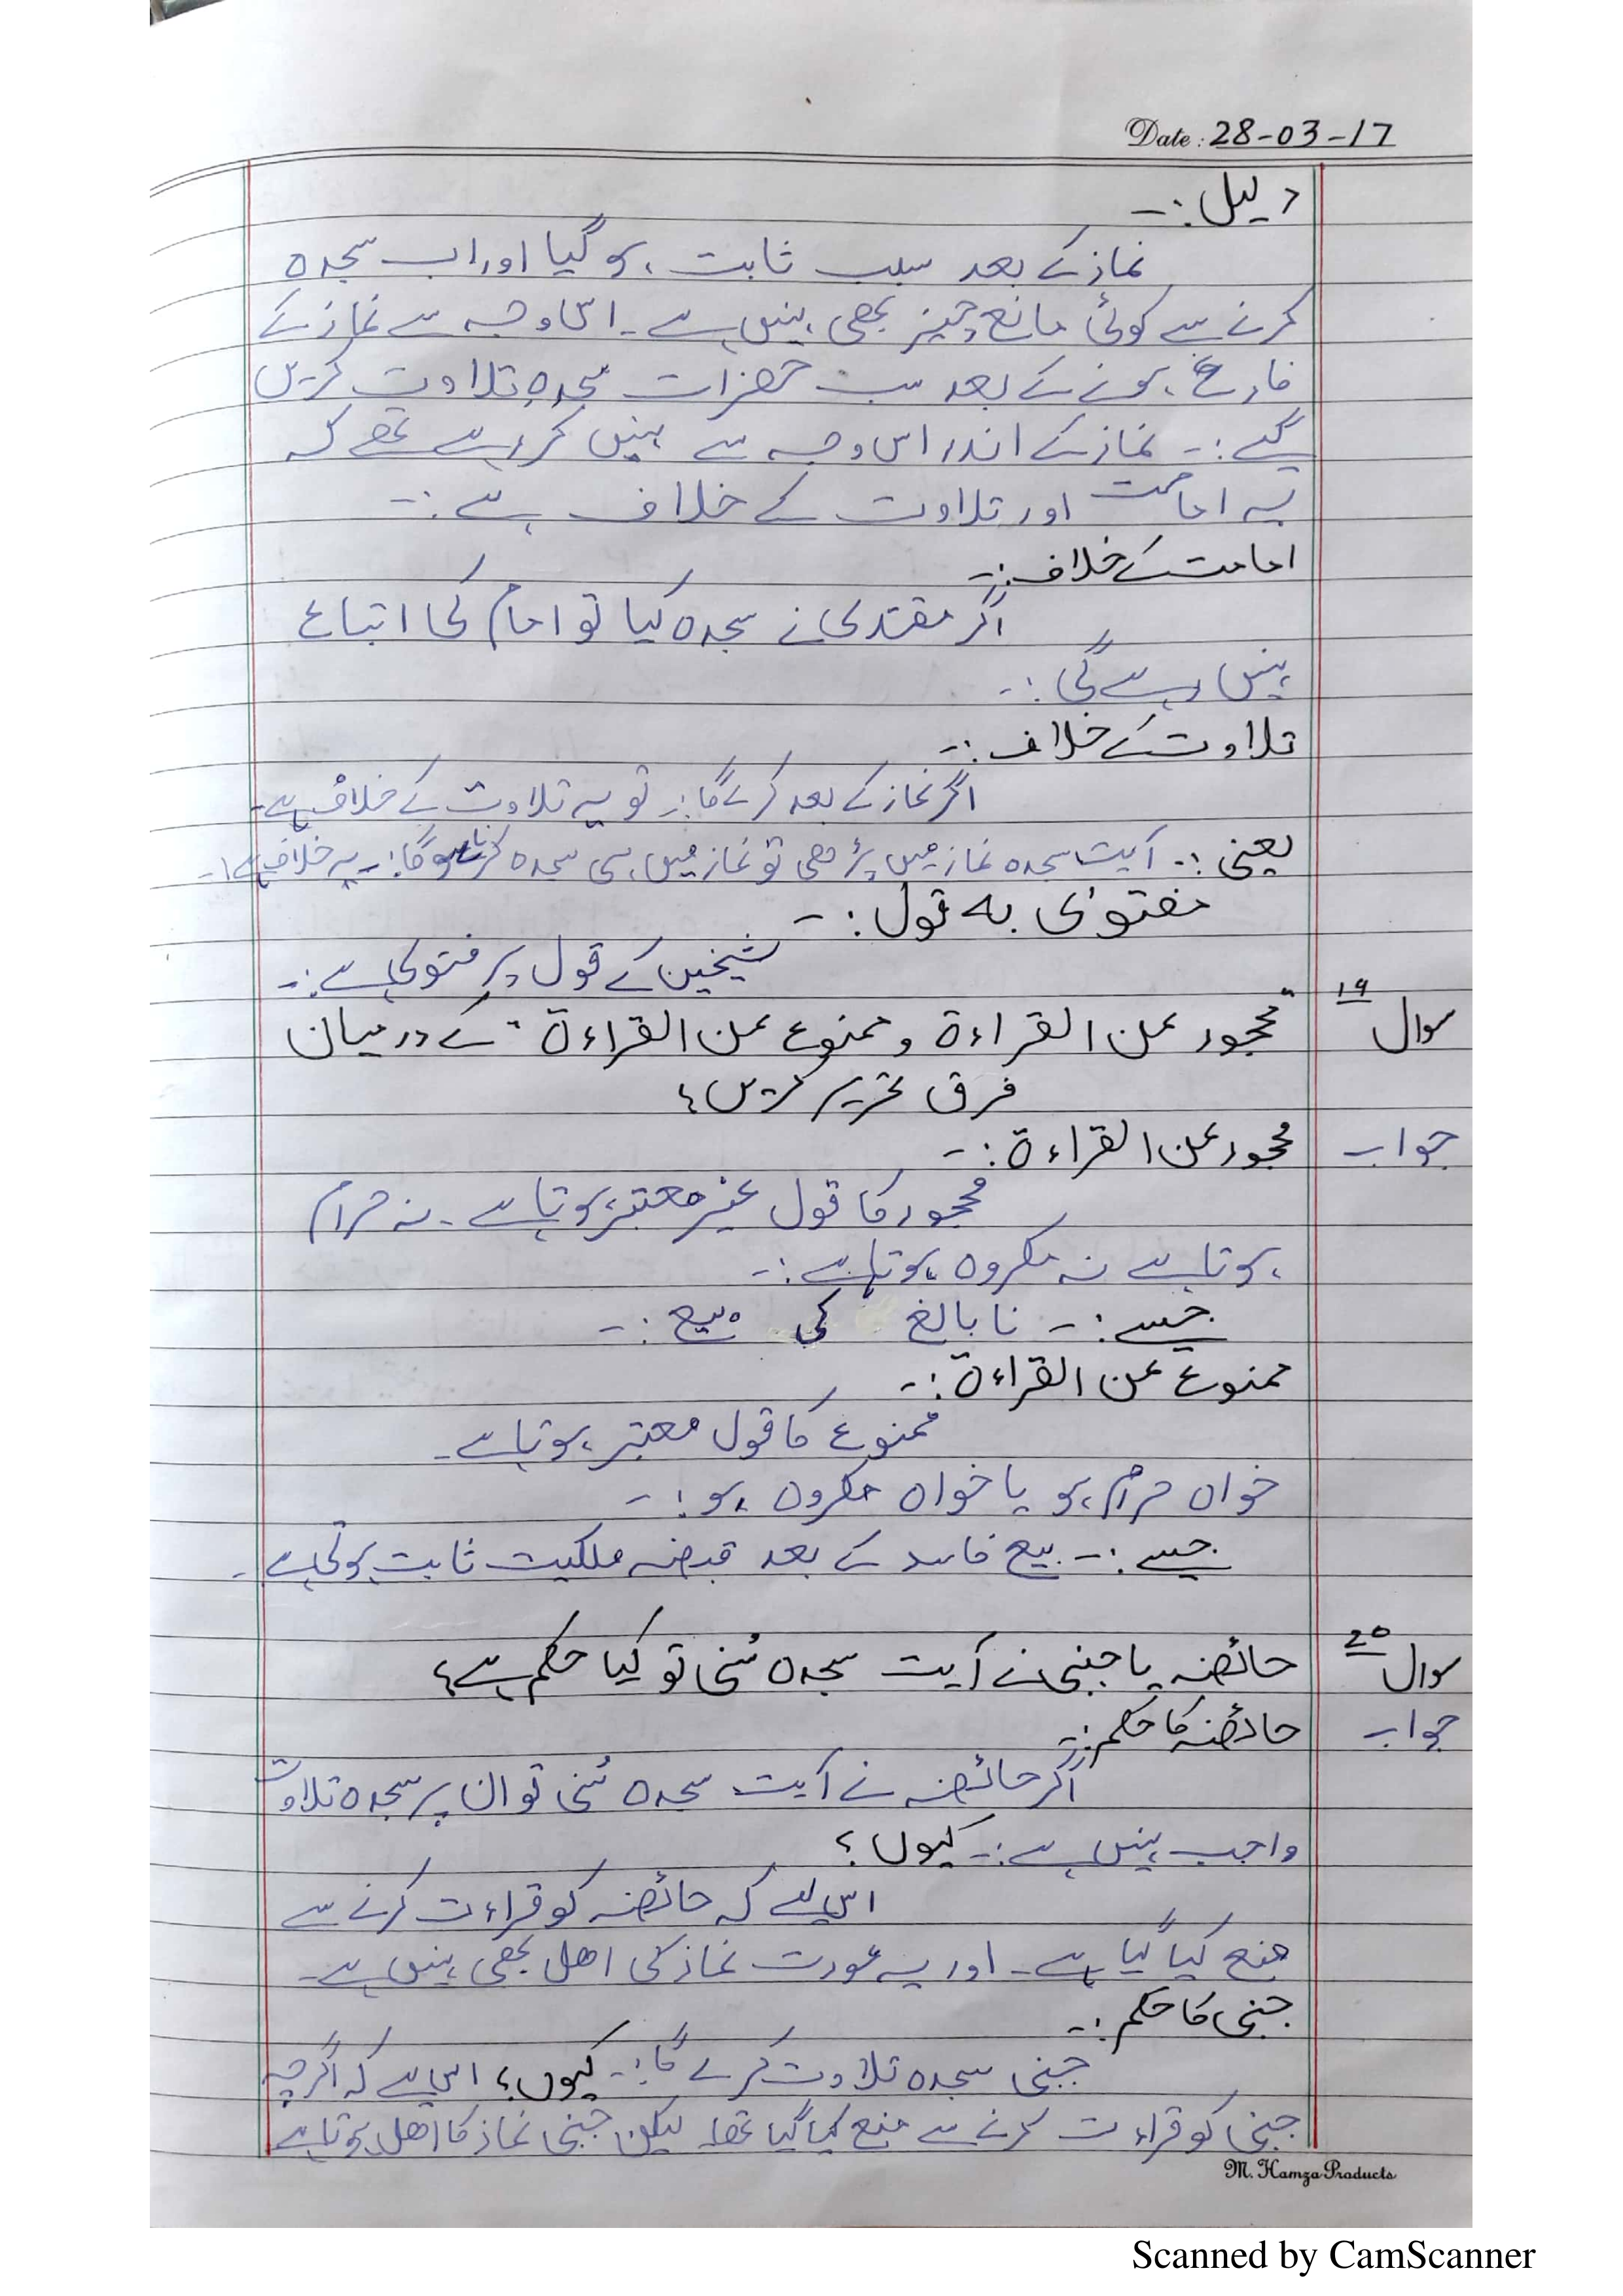 Date: 28-03-17
دلیل :-
نماز کے بعد سبب ثابت ہو گیا اور اب سجدہ
کرنے سے کوئی مانع چیز بھی نہیں ہے۔ اس وجہ سے نماز کے
فارغ ہونے کے بعد سب حضرات سجدہ تلاوت کریں
گے :- نماز کے اندر اس وجہ سے نہیں کر رہے تھے کہ
یہ امامت اور تلاوت کے خلاف ہے :-
امامت کے خلاف :-
اگر مقتدی نے سجدہ کیا تو امام کی اتباع
نہیں رہے گی :-
تلاوت کے خلاف :-
اگر نماز کے بعد کرے گا :- تو یہ تلاوت کے خلاف ہے۔
یعنی :- آیت سجدہ نماز میں پڑھی تو نماز میں ہی سجدہ کرنا ہوگا :- یہ خلاف ہے :-
مفتوی بہ قول :-
شیخین کے قول پر فتوی ہے :-
سوال ۱۹ "محجور عن القراءة و ممنوع عن القراءة" کے درمیان
فرق تحریر کریں؟
جواب محجور عن القراءة :-
محجور کا قول غیر معتبر ہوتا ہے۔ نہ حرام
ہوتا ہے نہ مکروہ ہوتا ہے :-
جیسے :- نابالغ کی بیع :-
ممنوع عن القراءة :-
ممنوع کا قول معتبر ہوتا ہے۔
خواہ حرام ہو یا خواہ مکروہ ہو :-
جیسے :- بیع فاسد کے بعد قبضہ ملکیت ثابت ہوتی ہے۔
سوال ۲۰ حائضہ یا جنبی نے آیت سجدہ سُنی تو کیا حکم ہے؟
جواب حائضہ کا حکم :-
اگر حائضہ نے آیت سجدہ سُنی تو ان پر سجدہ تلاوت
واجب نہیں ہے :- کیوں؟
اس لیے کہ حائضہ کو قراءت کرنے سے
منع کیا گیا ہے۔ اور یہ عورت نماز کی اھل بھی نہیں ہے۔
جنبی کا حکم :-
جنبی سجدہ تلاوت کرے گا :- کیوں؟ اس لیے کہ اگرچہ
جنبی کو قراءت کرنے سے منع کیا گیا تھا لیکن جنبی نماز کا اھل ہوتا ہے
M. Hamza Products
Scanned by CamScanner